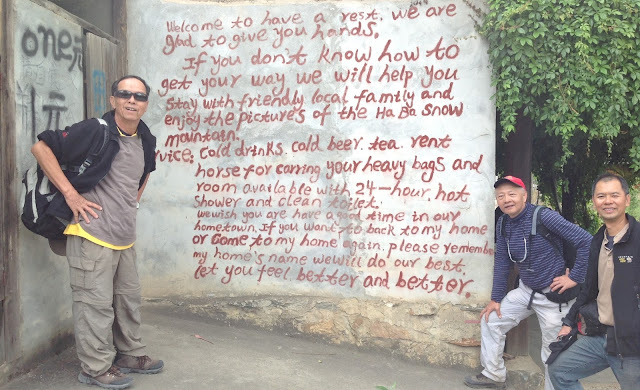 one元
元
Welcome to have a rest. we are
glad to give you hands.
If you don't know how to
get your way we will help you
Stay with friendly local family and
enjoy the pictures of the HaBa snow
mountain.
vice: Cold drinks. cold beer. tea. rent
horse for carring your heavy bags and
room available with 24-hour. hot
shower and clean toilet.
we wish you are have a good time in our
hometown. If you want to back to my home
or come to my home again. please remember
my home's name we will do our best.
let you feel better and better.